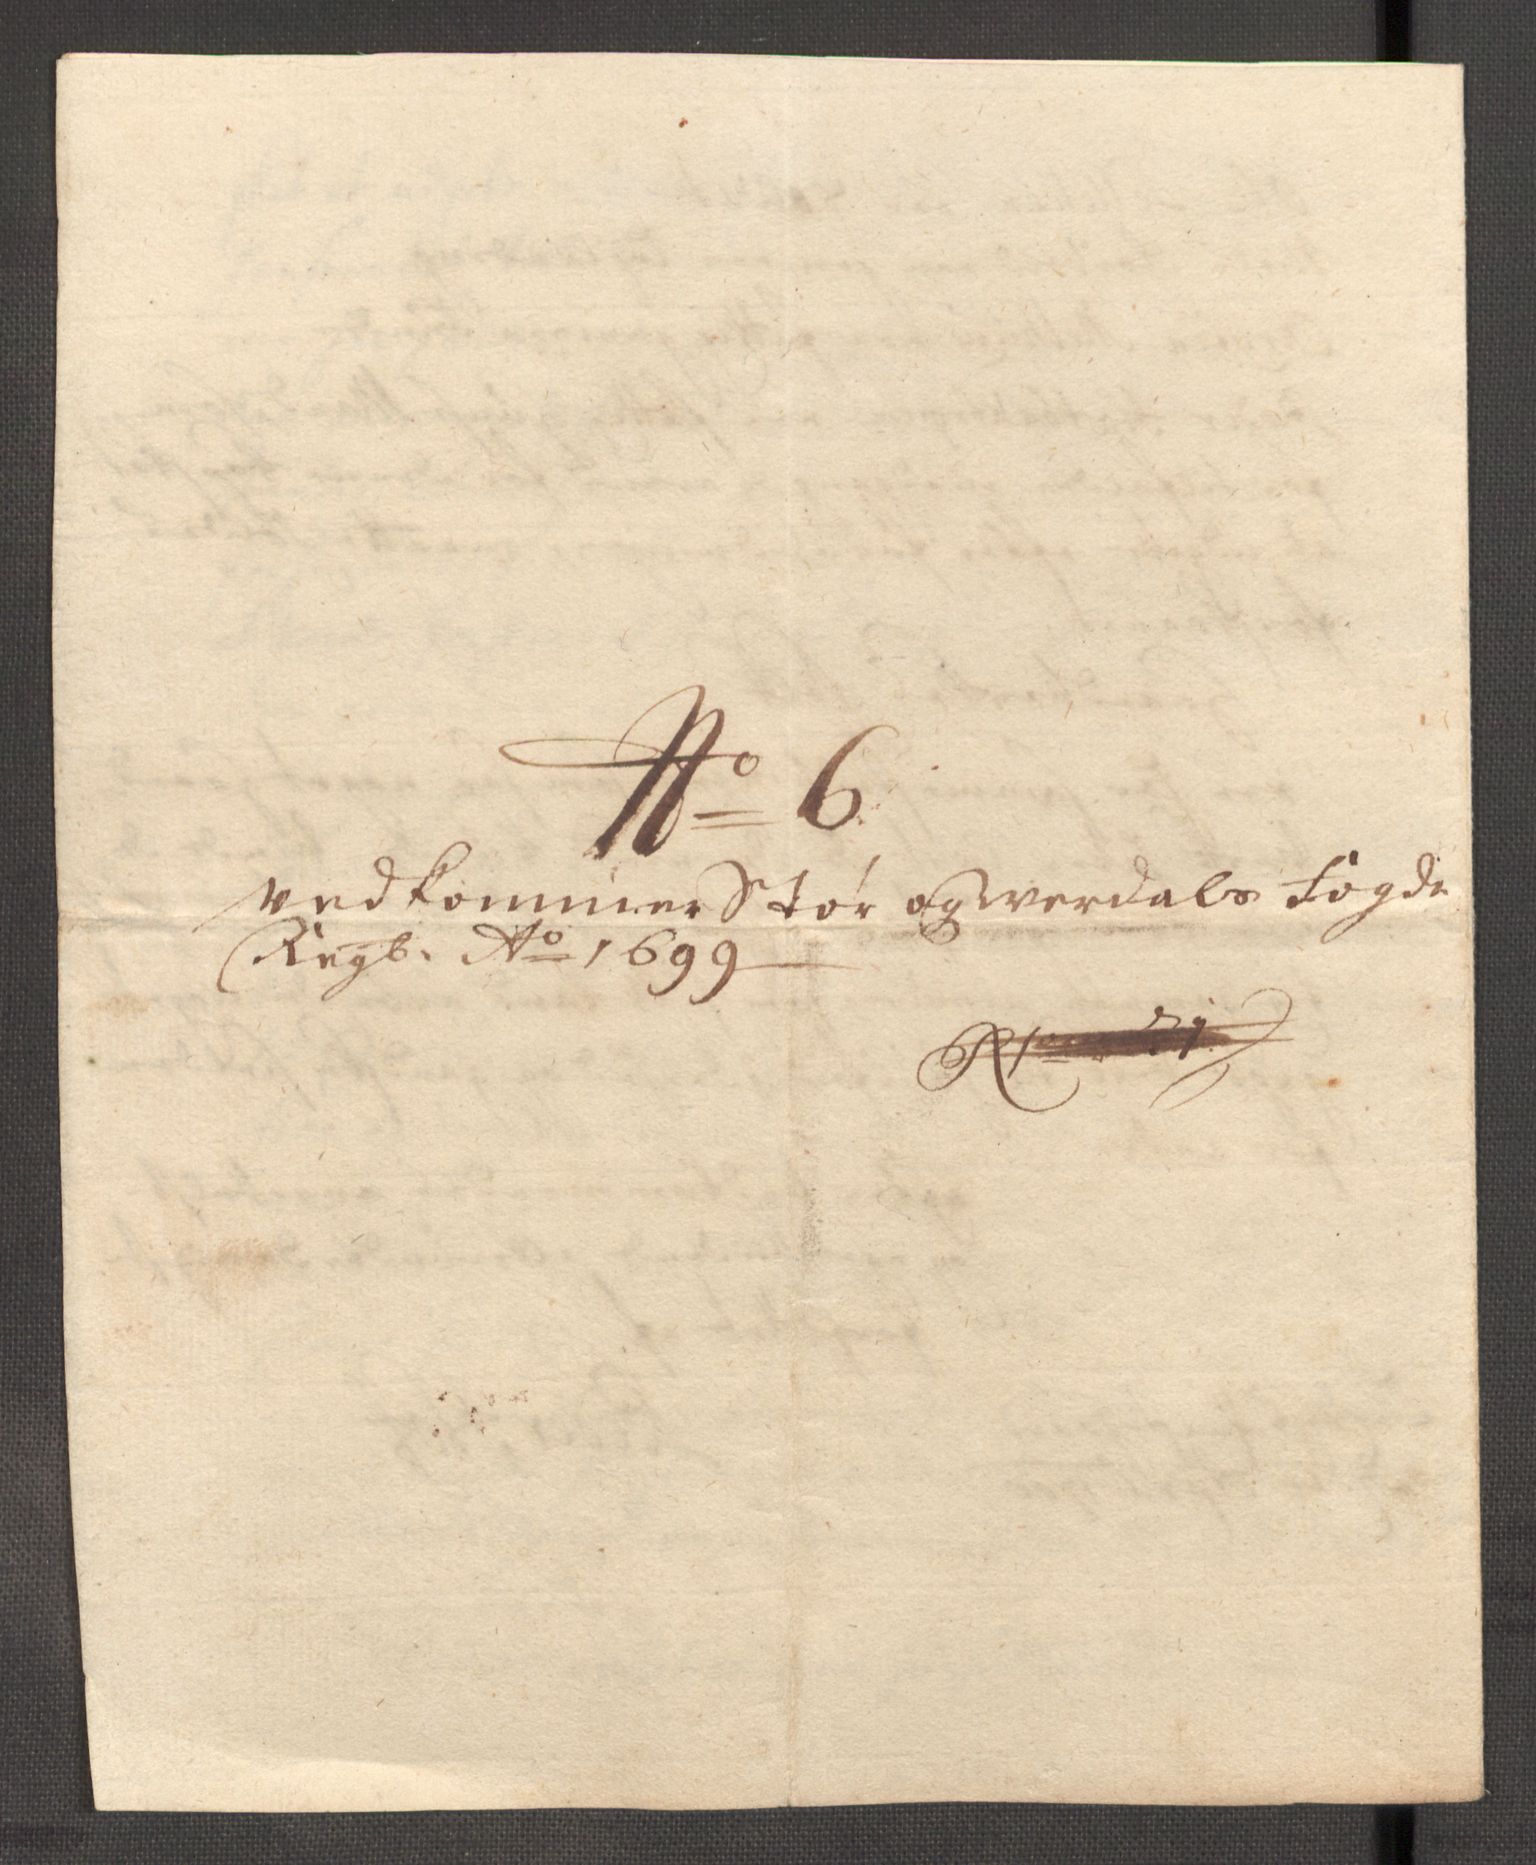 No 6
vedkommer Stør og werdals Fogde
Regb. Ao 1699